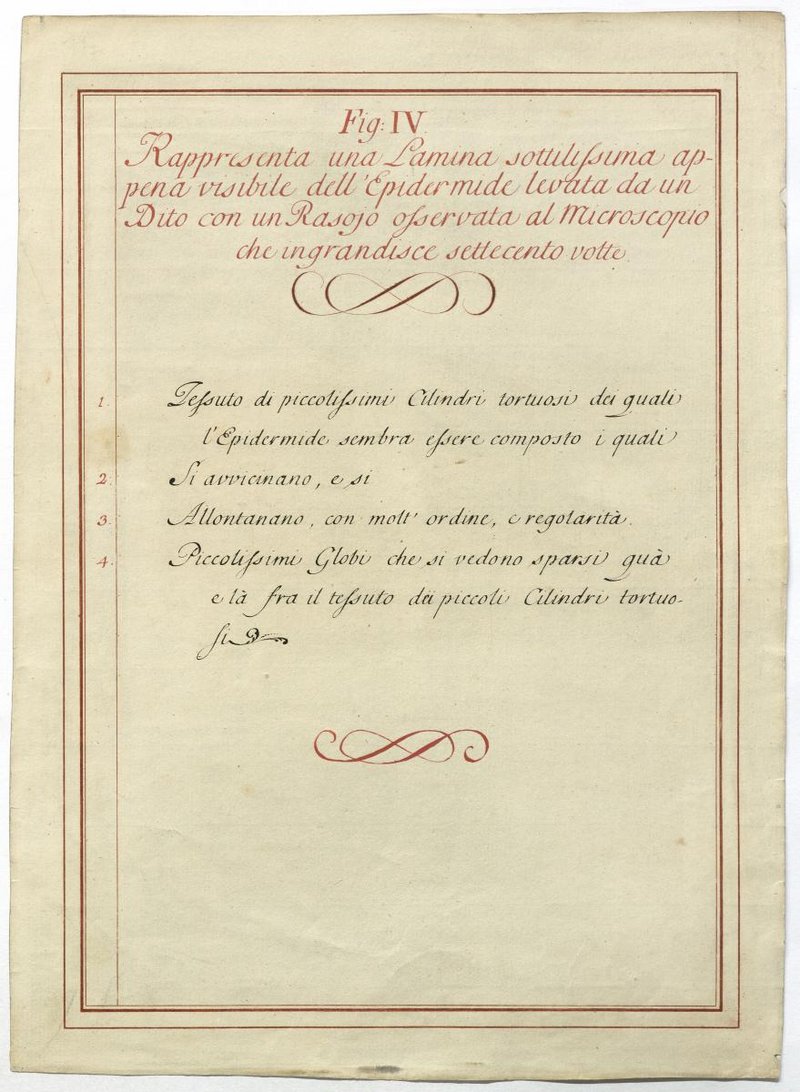 Fig: IV
Rappresenta una Lamina sottilissima ap-
pena visibile dell'Epidermide levata da un
Dito con un Rasojo osservata al Microscopio
che ingrandisce settecento volte.
1. Tessuto di piccolissimi Cilindri tortuosi dei quali
l'Epidermide sembra essere composto i quali
2. Si avvicinano, e si
3. Allontanano, con molt' ordine, e regolarità.
4. Piccolissimi Globi che si vedono sparsi quà
e là fra il tessuto dei piccoli Cilindri tortuo-
si